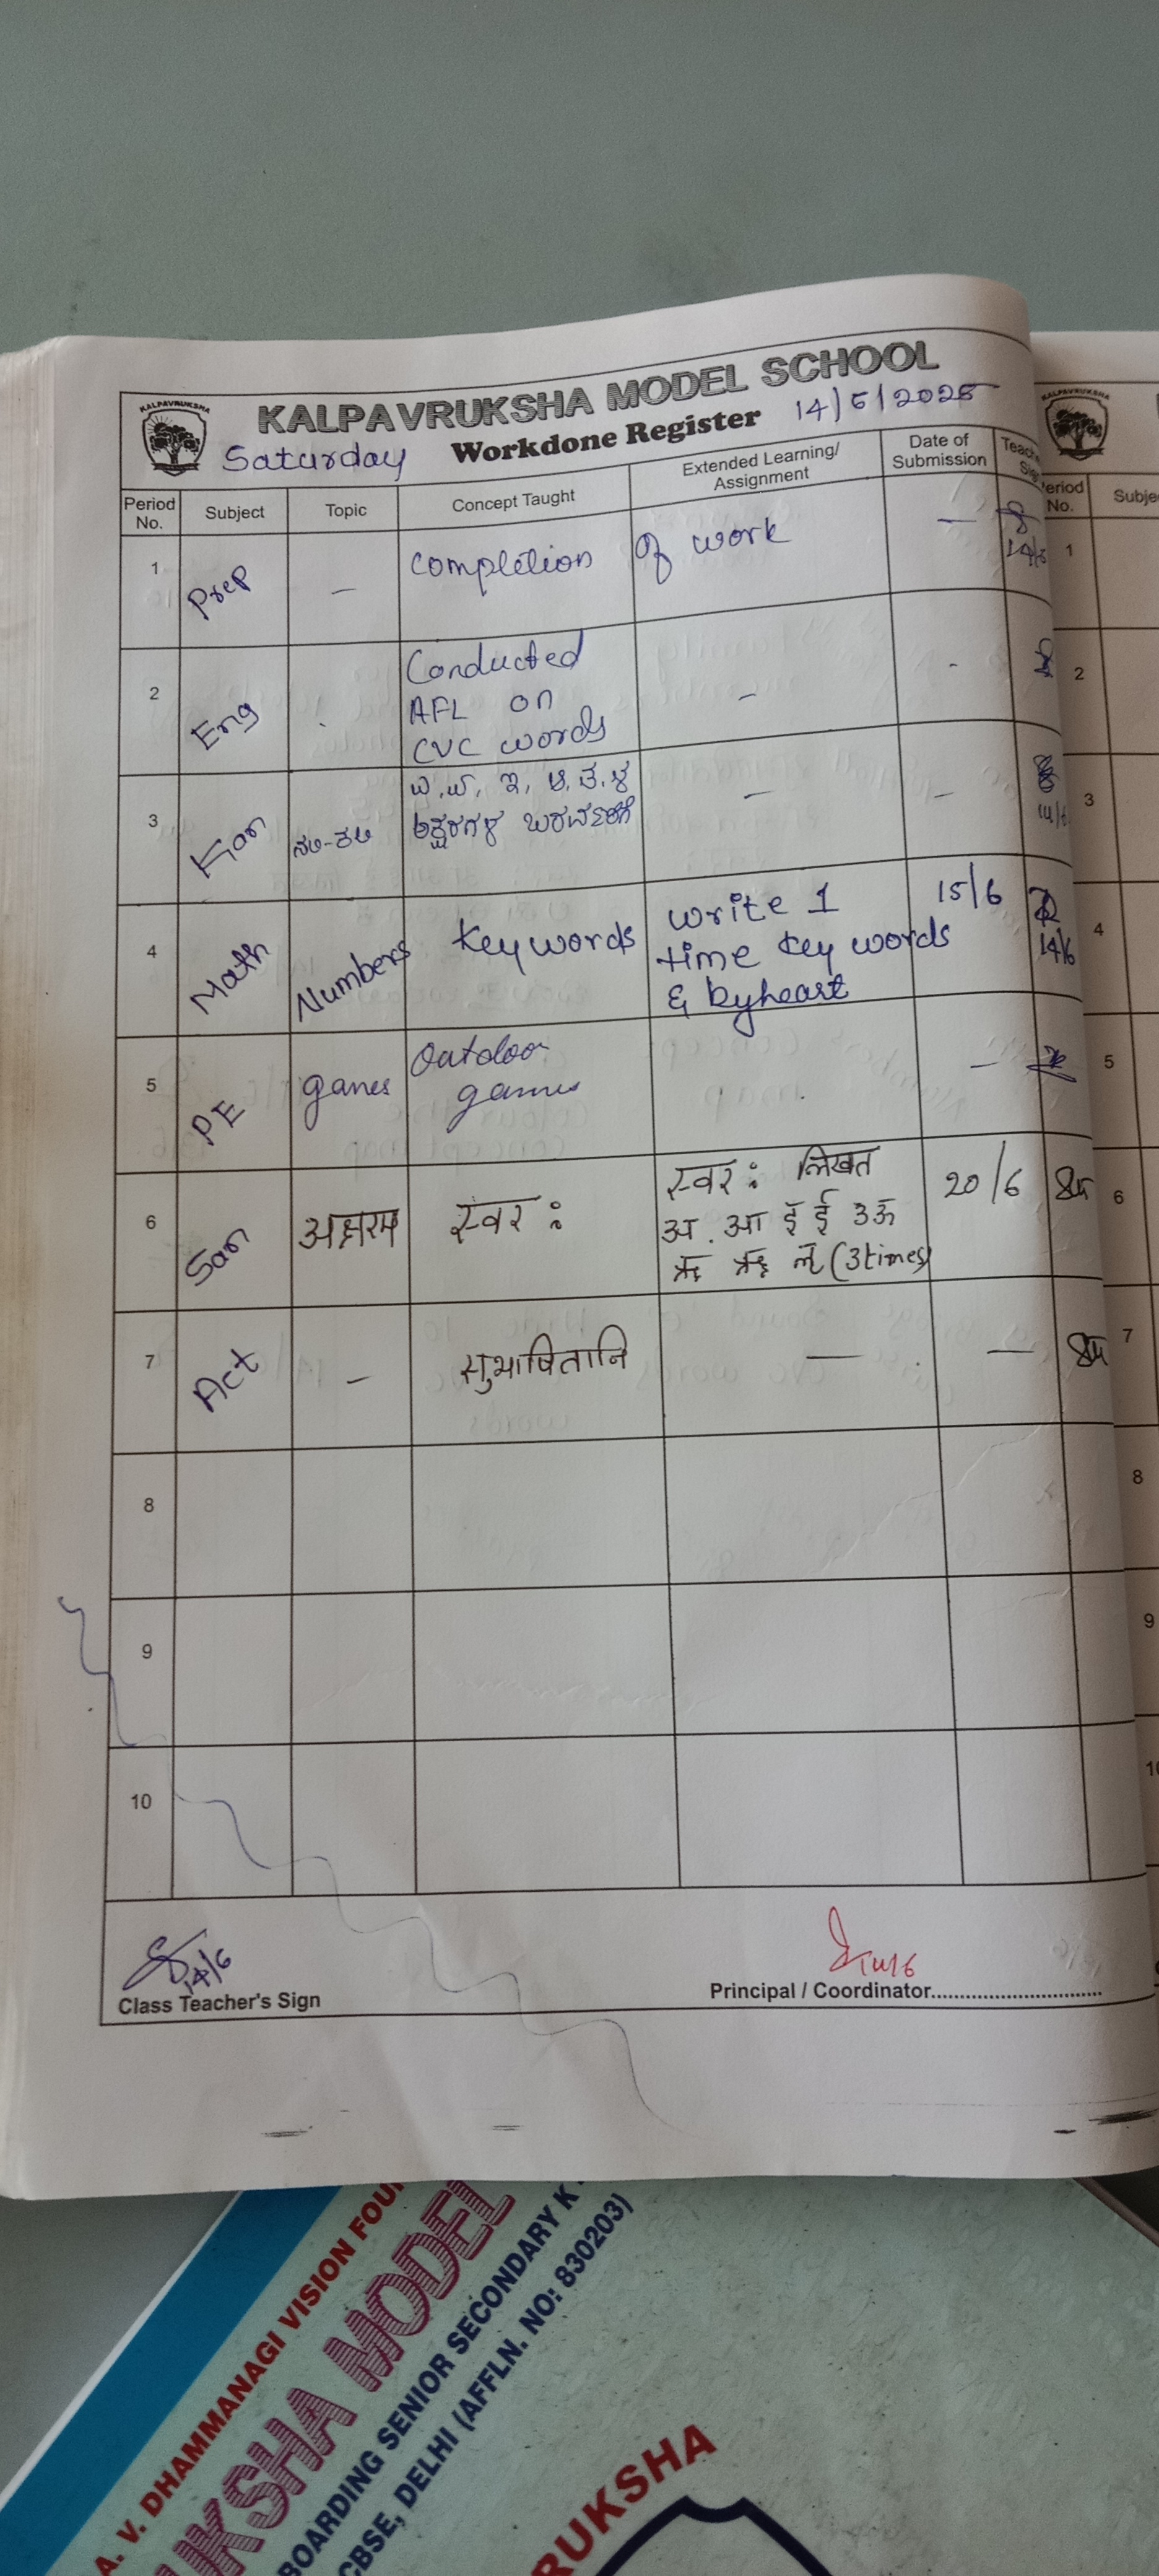 KALPAVRUKSHA
KALPAVRUKSHA MODEL SCHOOL
Saturday Workdone Register 14/6/2025
Period No. Subject Topic Concept Taught Extended Learning/ Assignment Date of Submission
1 Prep - completion of work - 14/6
2 Eng Conducted
AFL on - -
CVC words
3 Kan ನಲಿ-ಕಲಿ
ಅಕ್ಷರಗಳ - -
4 Math Numbers key words write 1 15/6
time key words 14/6
& byheart
5 PE games Outdoor
games -
6 San अक्षरम् स्वर: स्वर: लिखत 20/6
अ. आ इ ई उ ऊ
ऋ ॠ लृ (3 times)
7 Act - सुभाषितानि - -
8
9
10
14/6
Class Teacher's Sign
14/6
Principal / Coordinator
KALPAVRUKSHA
Period No. Subje
1
2
3
4
5
6
7
8
9
10
A. V. DHAMMANAGI VISION FOU
UKSHA MODEL
BOARDING SENIOR SECONDARY K
CBSE, DELHI (AFFLN. NO: 830203)
RUKSHA